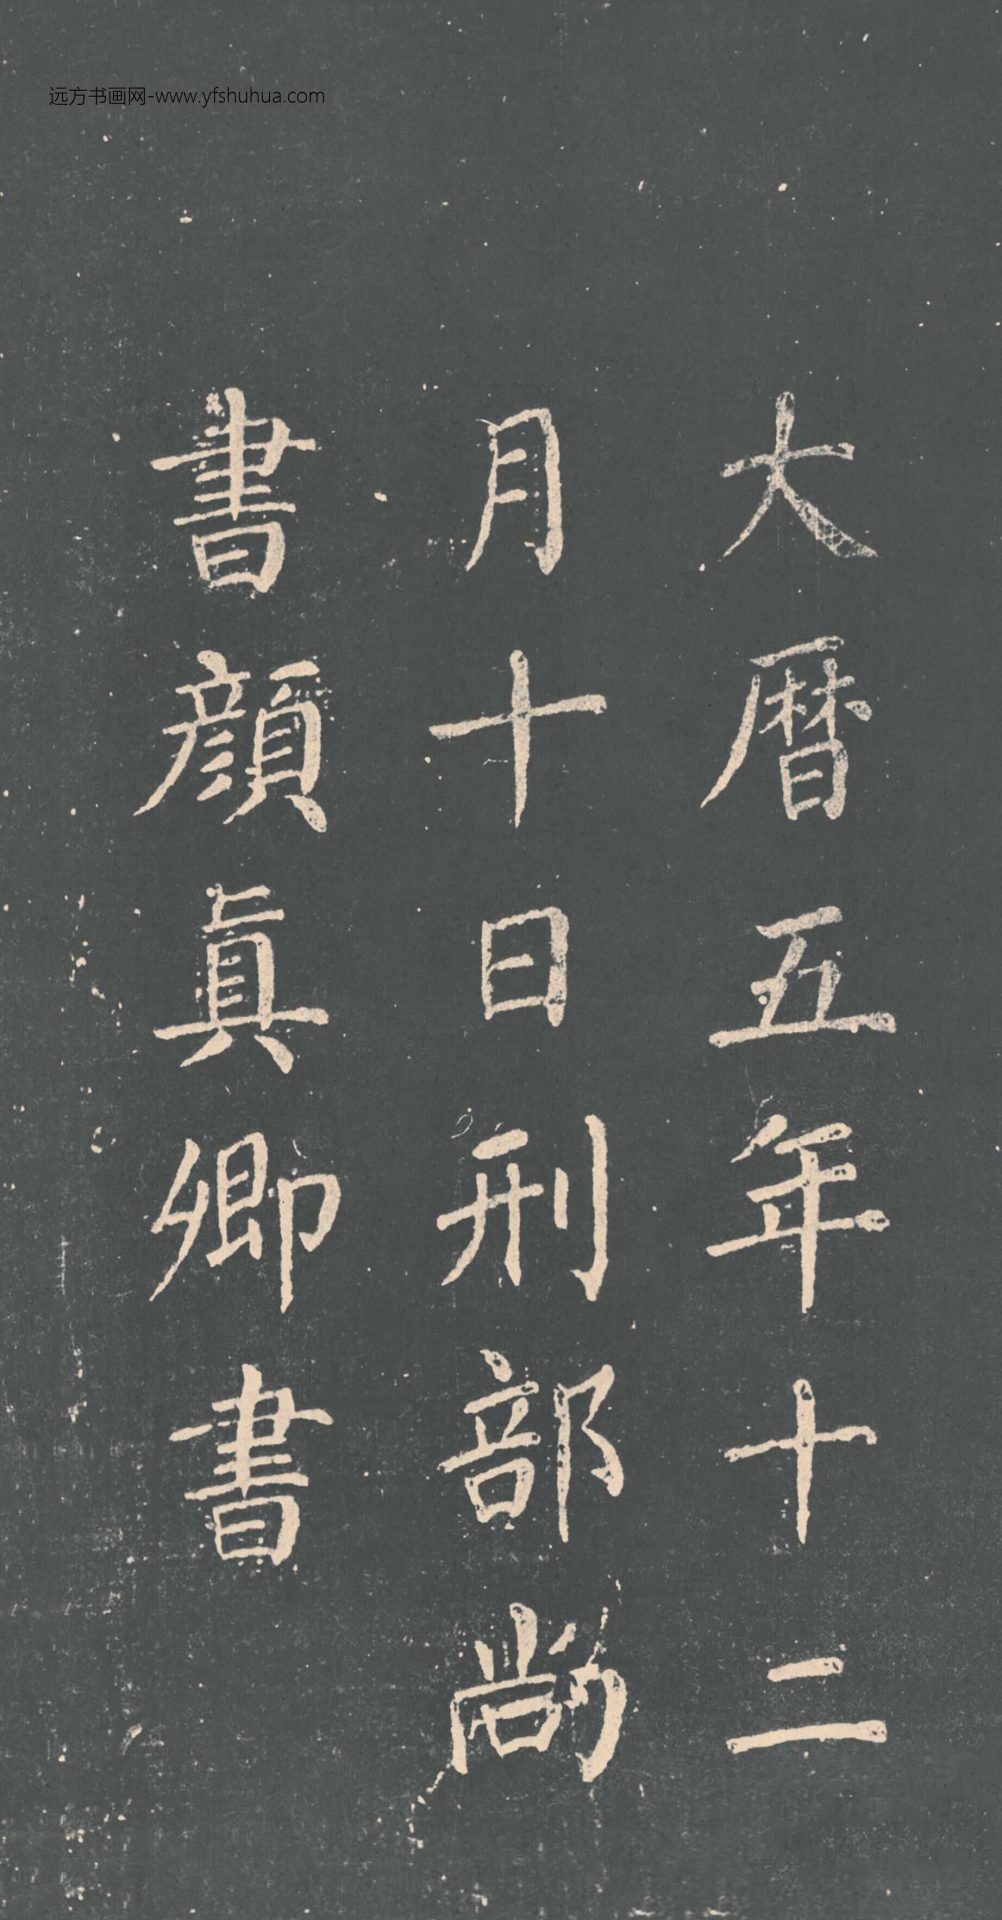 远方书画网-www.yfshuhua.com
大曆五年十二
月十日刑部尚
書顔真卿書